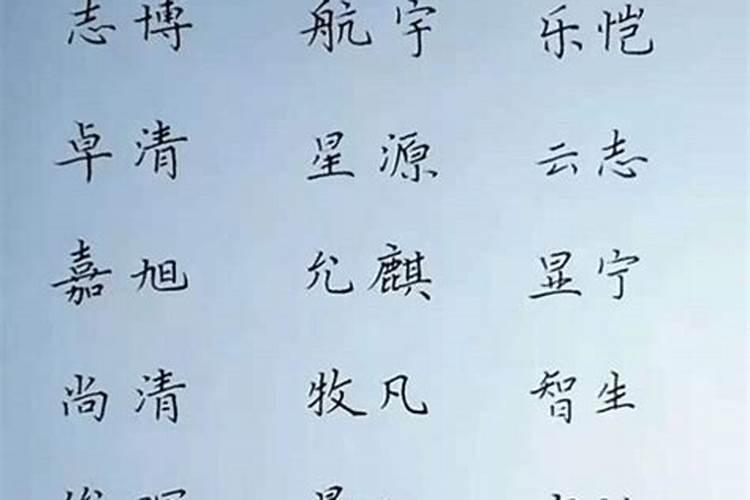 志博 航宇 乐恺
卓清 星源 云志
嘉旭 允麒 显宁
尚清 牧凡 智生